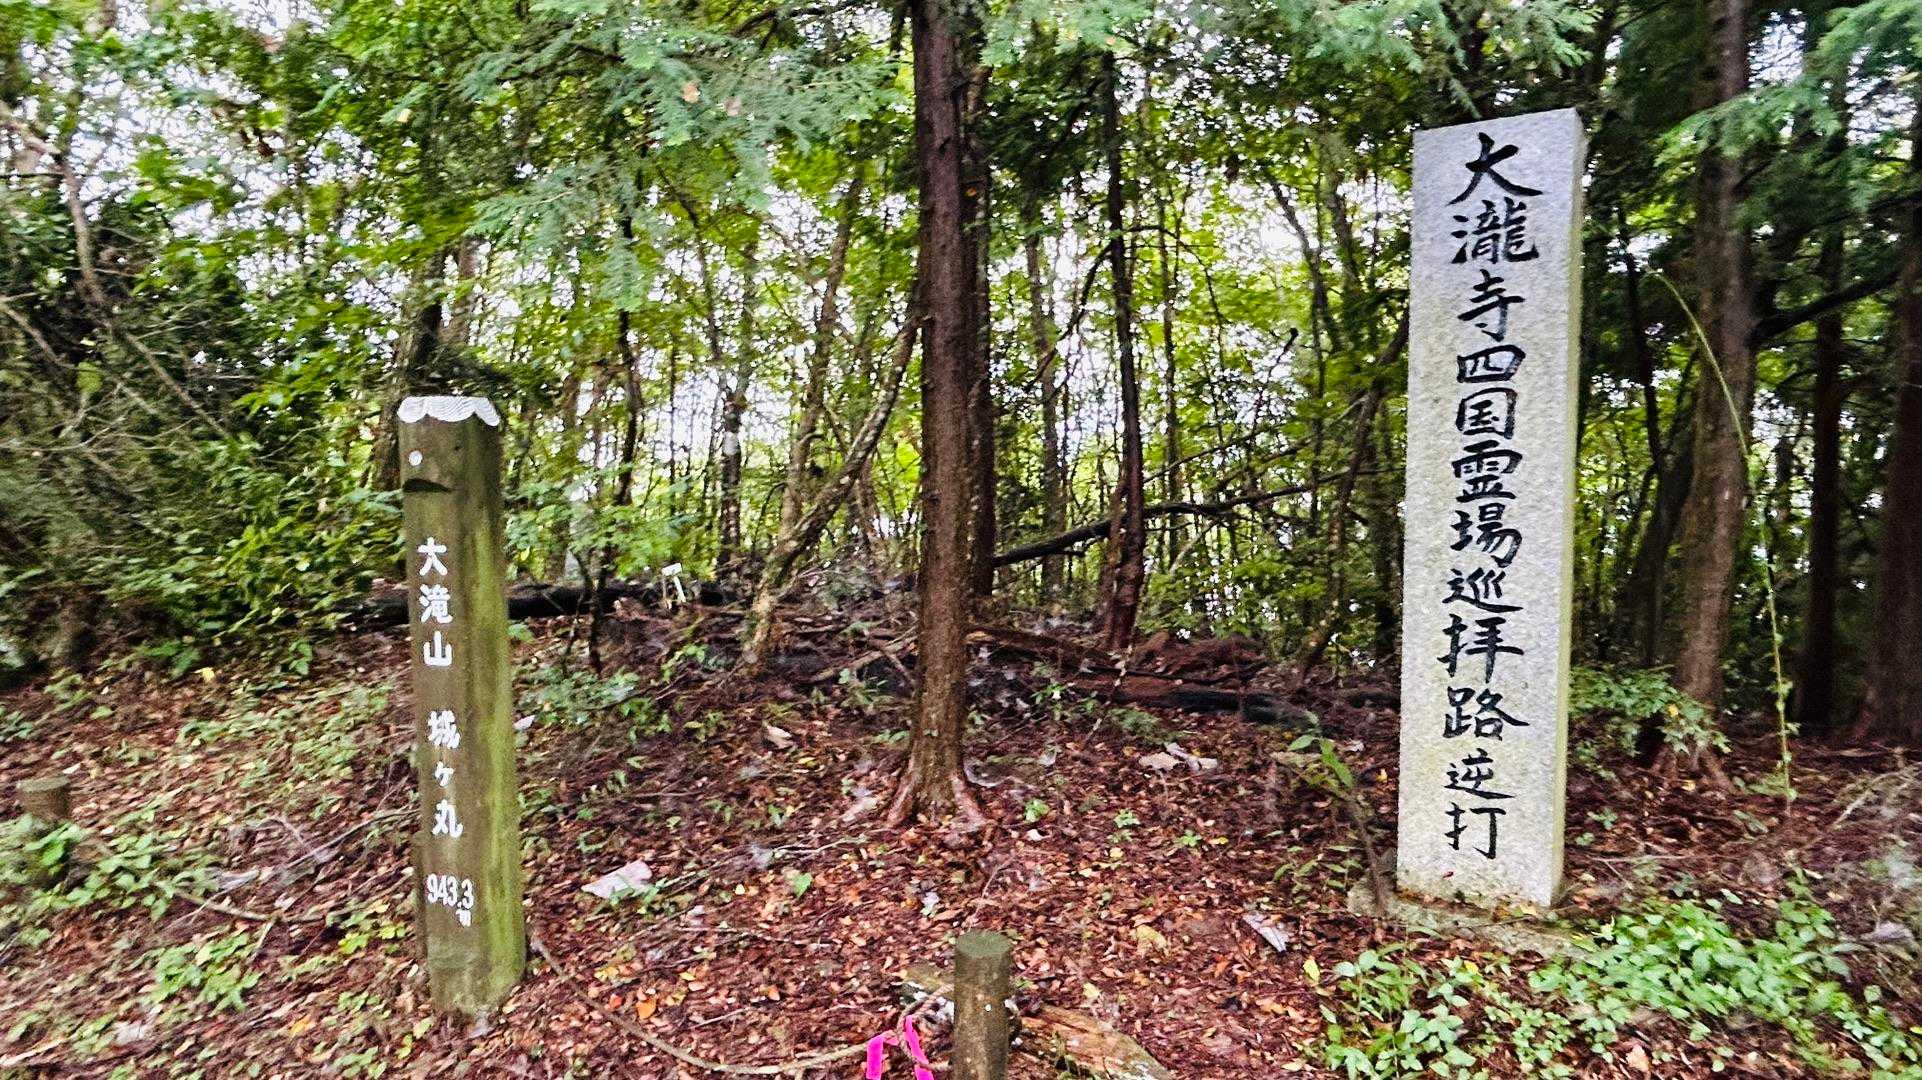 大滝山 城ヶ丸 943.3m
大瀧寺四国霊場巡拝路逆打